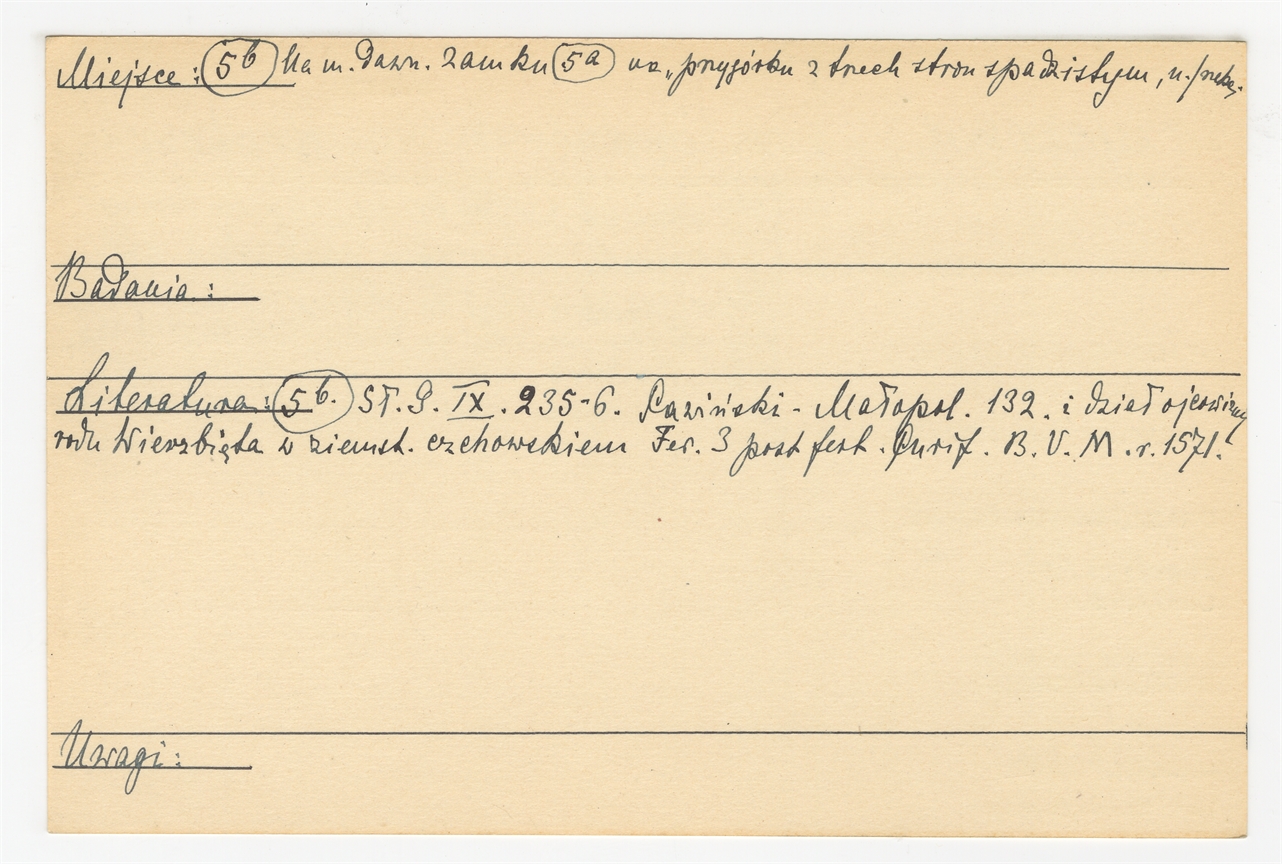 Miejsce: 5b Na m. dawn. zamku 5a na „przygórku z trzech stron spadzistym, n./rzeką.
Badania:
Literatura: 5b. Sł. G. IX. 235-6. Pawiński - Małopol. 132. i dział ojcowizny
rodu Wierzbięta w ziemst. czchowskiem Fer. 3 post fest. Purif. B. V. M. r. 1571.
Uwagi: